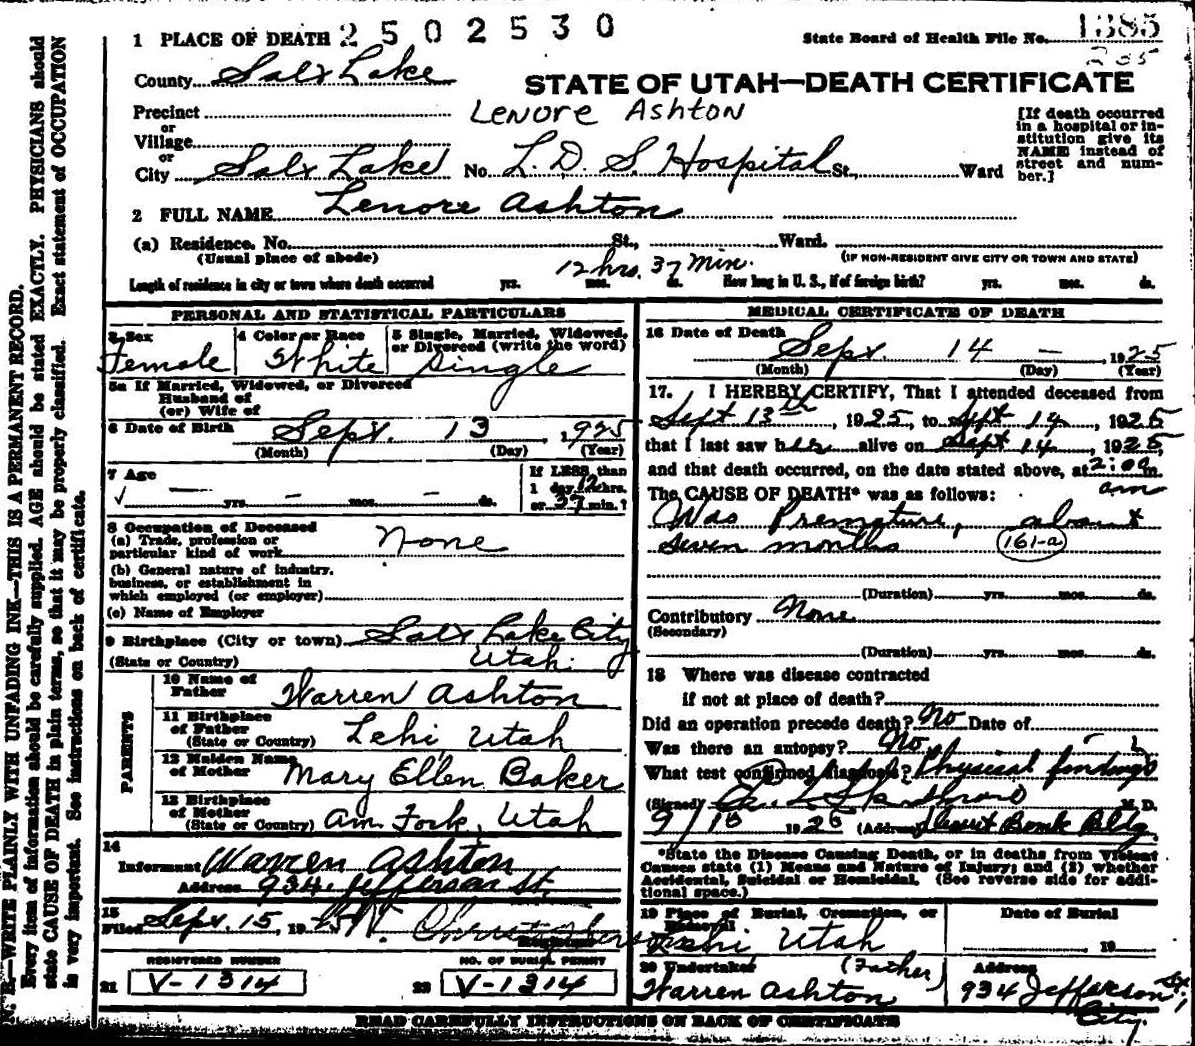 1 PLACE OF DEATH 2502530
State Board of Health File No. 1385
205
County Salt Lake
STATE OF UTAH—DEATH CERTIFICATE
Precinct
Lenore Ashton
or
Village
or
City Salt Lake No. L. D. S. Hospital St., Ward
[If death occurred
in a hospital or in-
stitution give its
NAME instead of
street and num-
ber.]
2 FULL NAME Lenore Ashton
(a) Residence. No. St., Ward.
(Usual place of abode)
(IF NON-RESIDENT GIVE CITY OR TOWN AND STATE)
12 hrs. 37 Min.
Length of residence in city or town where death occurred yrs. mos. ds. How long in U. S., if of foreign birth? yrs. mos. ds.
PERSONAL AND STATISTICAL PARTICULARS
3 Sex
Female
4 Color or Race
White
5 Single, Married, Widowed,
or Divorced (write the word)
Single
5a If Married, Widowed, or Divorced
Husband of
(or) Wife of
6 Date of Birth Sept. 13, 1925
(Month) (Day) (Year)
7 Age
— yrs. — mos. — ds.
If LESS than
1 day 12 hrs.
or 37 min.?
8 Occupation of Deceased
(a) Trade, profession or
particular kind of work None
(b) General nature of industry,
business, or establishment in
which employed (or employer)
(c) Name of Employer
9 Birthplace (City or town) Salt Lake City
(State or Country) Utah.
PARENTS
10 Name of
Father Warren Ashton
11 Birthplace
of Father
(State or Country) Lehi, Utah
12 Maiden Name
of Mother Mary Ellen Baker
13 Birthplace
of Mother
(State or Country) Am Fork, Utah
14
Informant Warren Ashton
Address 934 Jefferson St.
15
Filed Sept. 15, 1925
Registrar
REGISTERED NUMBER
21 V-1314
NO. OF BURIAL PERMIT
22 V-1314
MEDICAL CERTIFICATE OF DEATH
16 Date of Death
Sept. 14 — , 1925
(Month) (Day) (Year)
17. I HEREBY CERTIFY, That I attended deceased from
Sept 13th, 1925, to Sept 14, 1925
that I last saw her alive on Sept 14, 1925,
and that death occurred, on the date stated above, at 2:00 m.
am
The CAUSE OF DEATH* was as follows:
Was Premature, about
seven months 161-a
(Duration) yrs. mos. ds.
Contributory None
(Secondary)
(Duration) yrs. mos. ds.
18 Where was disease contracted
if not at place of death?
Did an operation precede death? No Date of
Was there an autopsy? No
What test confirmed diagnosis? Physical findings
(Signed) M. D.
9/15 1925 (Address) Deseret Bank Bldg.
*State the Disease Causing Death, or in deaths from Violent
Causes state (1) Means and Nature of Injury; and (2) whether
Accidental, Suicidal or Homicidal. (See reverse side for addi-
tional space.)
19 Place of Burial, Cremation, or
Removal
Lehi Utah
Date of Burial
19
20 Undertaker (Father)
Warren Ashton
Address
934 Jefferson St.,
City.
READ CAREFULLY INSTRUCTIONS ON BACK OF CERTIFICATE
N. B.—WRITE PLAINLY WITH UNFADING INK—THIS IS A PERMANENT RECORD.
Every item of information should be carefully supplied. AGE should be stated EXACTLY. PHYSICIANS should
state CAUSE OF DEATH in plain terms, so that it may be properly classified. Exact statement of OCCUPATION
is very important. See instructions on back of certificate.